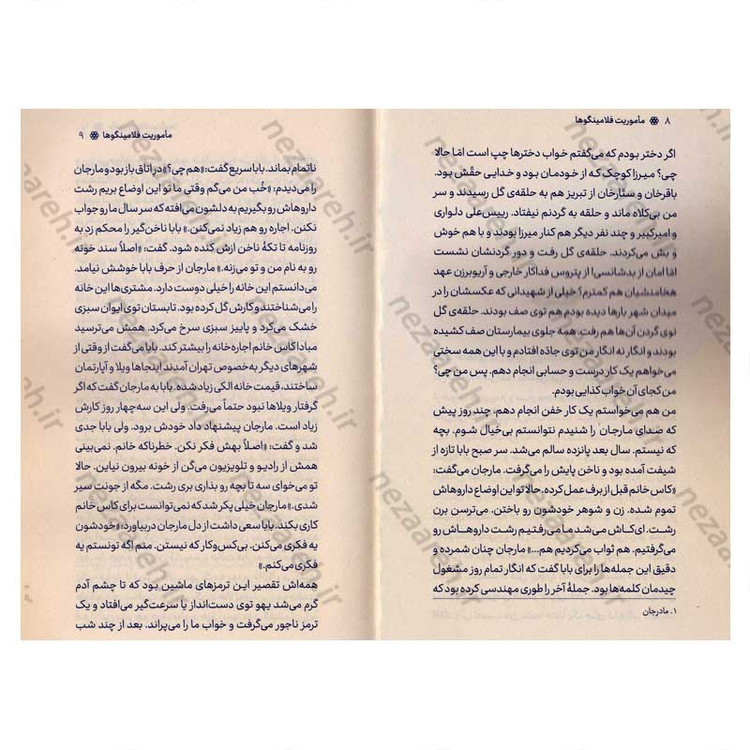 ۸ مأموریت فلامینگوها
اگر دختر بودم که می‌گفتم خواب دخترها چپ است امّا حالا
چی؟ میرزا کوچک که از خودمان بود و خدایی حقّش بود.
باقرخان و ستّارخان از تبریز هم به حلقه‌ی گل رسیدند و سر
من بی‌کلاه ماند و حلقه به گردنم نیفتاد. رییس‌علی دلواری
و امیرکبیر و چند نفر دیگر هم کنار میرزا بودند و با هم خوش
و بش می‌کردند. حلقه‌ی گل رفت و دور گردنشان نشست
امّا امان از بدشانسی! از پتروس فداکار خارجی و آریوبرزن عهد
هخامنشیان هم کمترم؟ خیلی از شهیدانی که عکسشان را در
میدان شهر بارها دیده بودم هم توی صف بودند. حلقه‌ی گل
توی گردن آن‌ها هم رفت. همه جلوی بیمارستان صف کشیده
بودند و انگار نه انگار من توی جادّه افتادم و با این همه سختی
می‌خواهم یک کار درست و حسابی انجام دهم. پس من چی؟
من کجای آن خواب کذایی بودم.
من هم می‌خواستم یک کار خفن انجام دهم، چند روز پیش
که صدای مارجان را شنیدم نتوانستم بی‌خیال شوم. بچه
که نیستم. سال بعد پانزده سالم می‌شد. سر صبح بابا تازه از
شیفت آمده بود و ناخن پایش را می‌گرفت. مارجان می‌گفت:
«کاس خانم قبل از برف عمل کرده. حالا تو این اوضاع داروهاش
تموم شده. زن و شوهر خودشون رو باختن. می‌ترسن برن
رشت. ای‌کاش می‌شد ما می‌رفتیم رشت داروهاش رو
می‌گرفتیم. هم ثواب می‌کردیم هم...» مارجان چنان شمرده و
دقیق این جمله‌ها را برای بابا گفت که انگار تمام روز مشغول
چیدمان کلمه‌ها بود. جملهٔ آخر را طوری مهندسی کرده بود که
۱. مادرجان
مأموریت فلامینگوها ۹
ناتمام بماند. بابا سریع گفت: «هم چی؟» در اتاق باز بود و مارجان
را می‌دیدم: «خُب من می‌گم وقتی ما تو این اوضاع بریم رشت
داروهاش رو بگیریم به دلشون می‌افته که سر سال ما رو جواب
نکنن. اجاره رو هم زیاد نمی‌کنن.» بابا ناخن‌گیر را محکم زد به
روزنامه تا تکهٔ ناخن ازش کنده شود. گفت: «اصلاً سند خونه
رو به نام من و تو می‌زنه.» مارجان از حرف بابا خوشش نیامد.
می‌دانستم این خانه را خیلی دوست دارد. مشتری‌ها این خانه
را می‌شناختند و کارش گل کرده بود. تابستان توی ایوان سبزی
خشک می‌کرد و پاییز سبزی سرخ می‌کرد. همش می‌ترسید
مبادا کاس خانم اجاره خانه را بیشتر کند. بابا می‌گفت از وقتی از
شهرهای دیگر به‌خصوص تهران آمدند اینجاها ویلا و آپارتمان
ساختند، قیمت خانه الکی زیاد شده. بابا به مارجان گفت که اگر
گرفتار ویلاها نبود حتماً می‌رفت. ولی این سه‌چهار روز کارش
زیاد است. مارجان پیشنهاد داد خودش برود. ولی بابا جدی
شد و گفت: «اصلاً بهش فکر نکن. خطرناکه خانم. نمی‌بینی
همش از رادیو و تلویزیون می‌گن از خونه بیرون نیاین. حالا
تو می‌خوای سه تا بچه رو بذاری بری رشت. مگه از جونت سیر
شدی.» مارجان خیلی پکر شد که نمی‌توانست برای کاس خانم
کاری بکند. بابا سعی داشت از دل مارجان دربیاورد: «خودشون
یه فکری می‌کنن. بی‌کس‌وکار که نیستن. منم اگه تونستم یه
فکری می‌کنم.»
همه‌اش تقصیر این ترمزهای ماشین بود که تا چشم آدم
گرم می‌شد یهو توی دست‌انداز یا سرعت‌گیر می‌افتاد و یک
ترمز ناجور می‌گرفت و خواب ما را می‌پراند. بعد از چند شب
nezaareh.ir